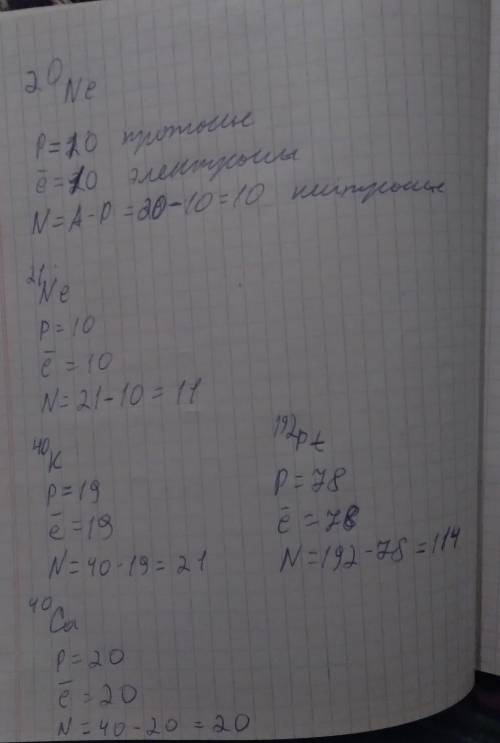 ²⁰Ne
P=10 протоны
ē=10 электроны
N=A-P=20-10=10 нейтроны
²¹Ne
P=10
ē=10
N=21-10=11
⁴⁰K
P=19
ē=19
N=40-19=21
¹⁹²Pt
P=78
ē=78
N=192-78=114
⁴⁰Ca
P=20
ē=20
N=40-20=20